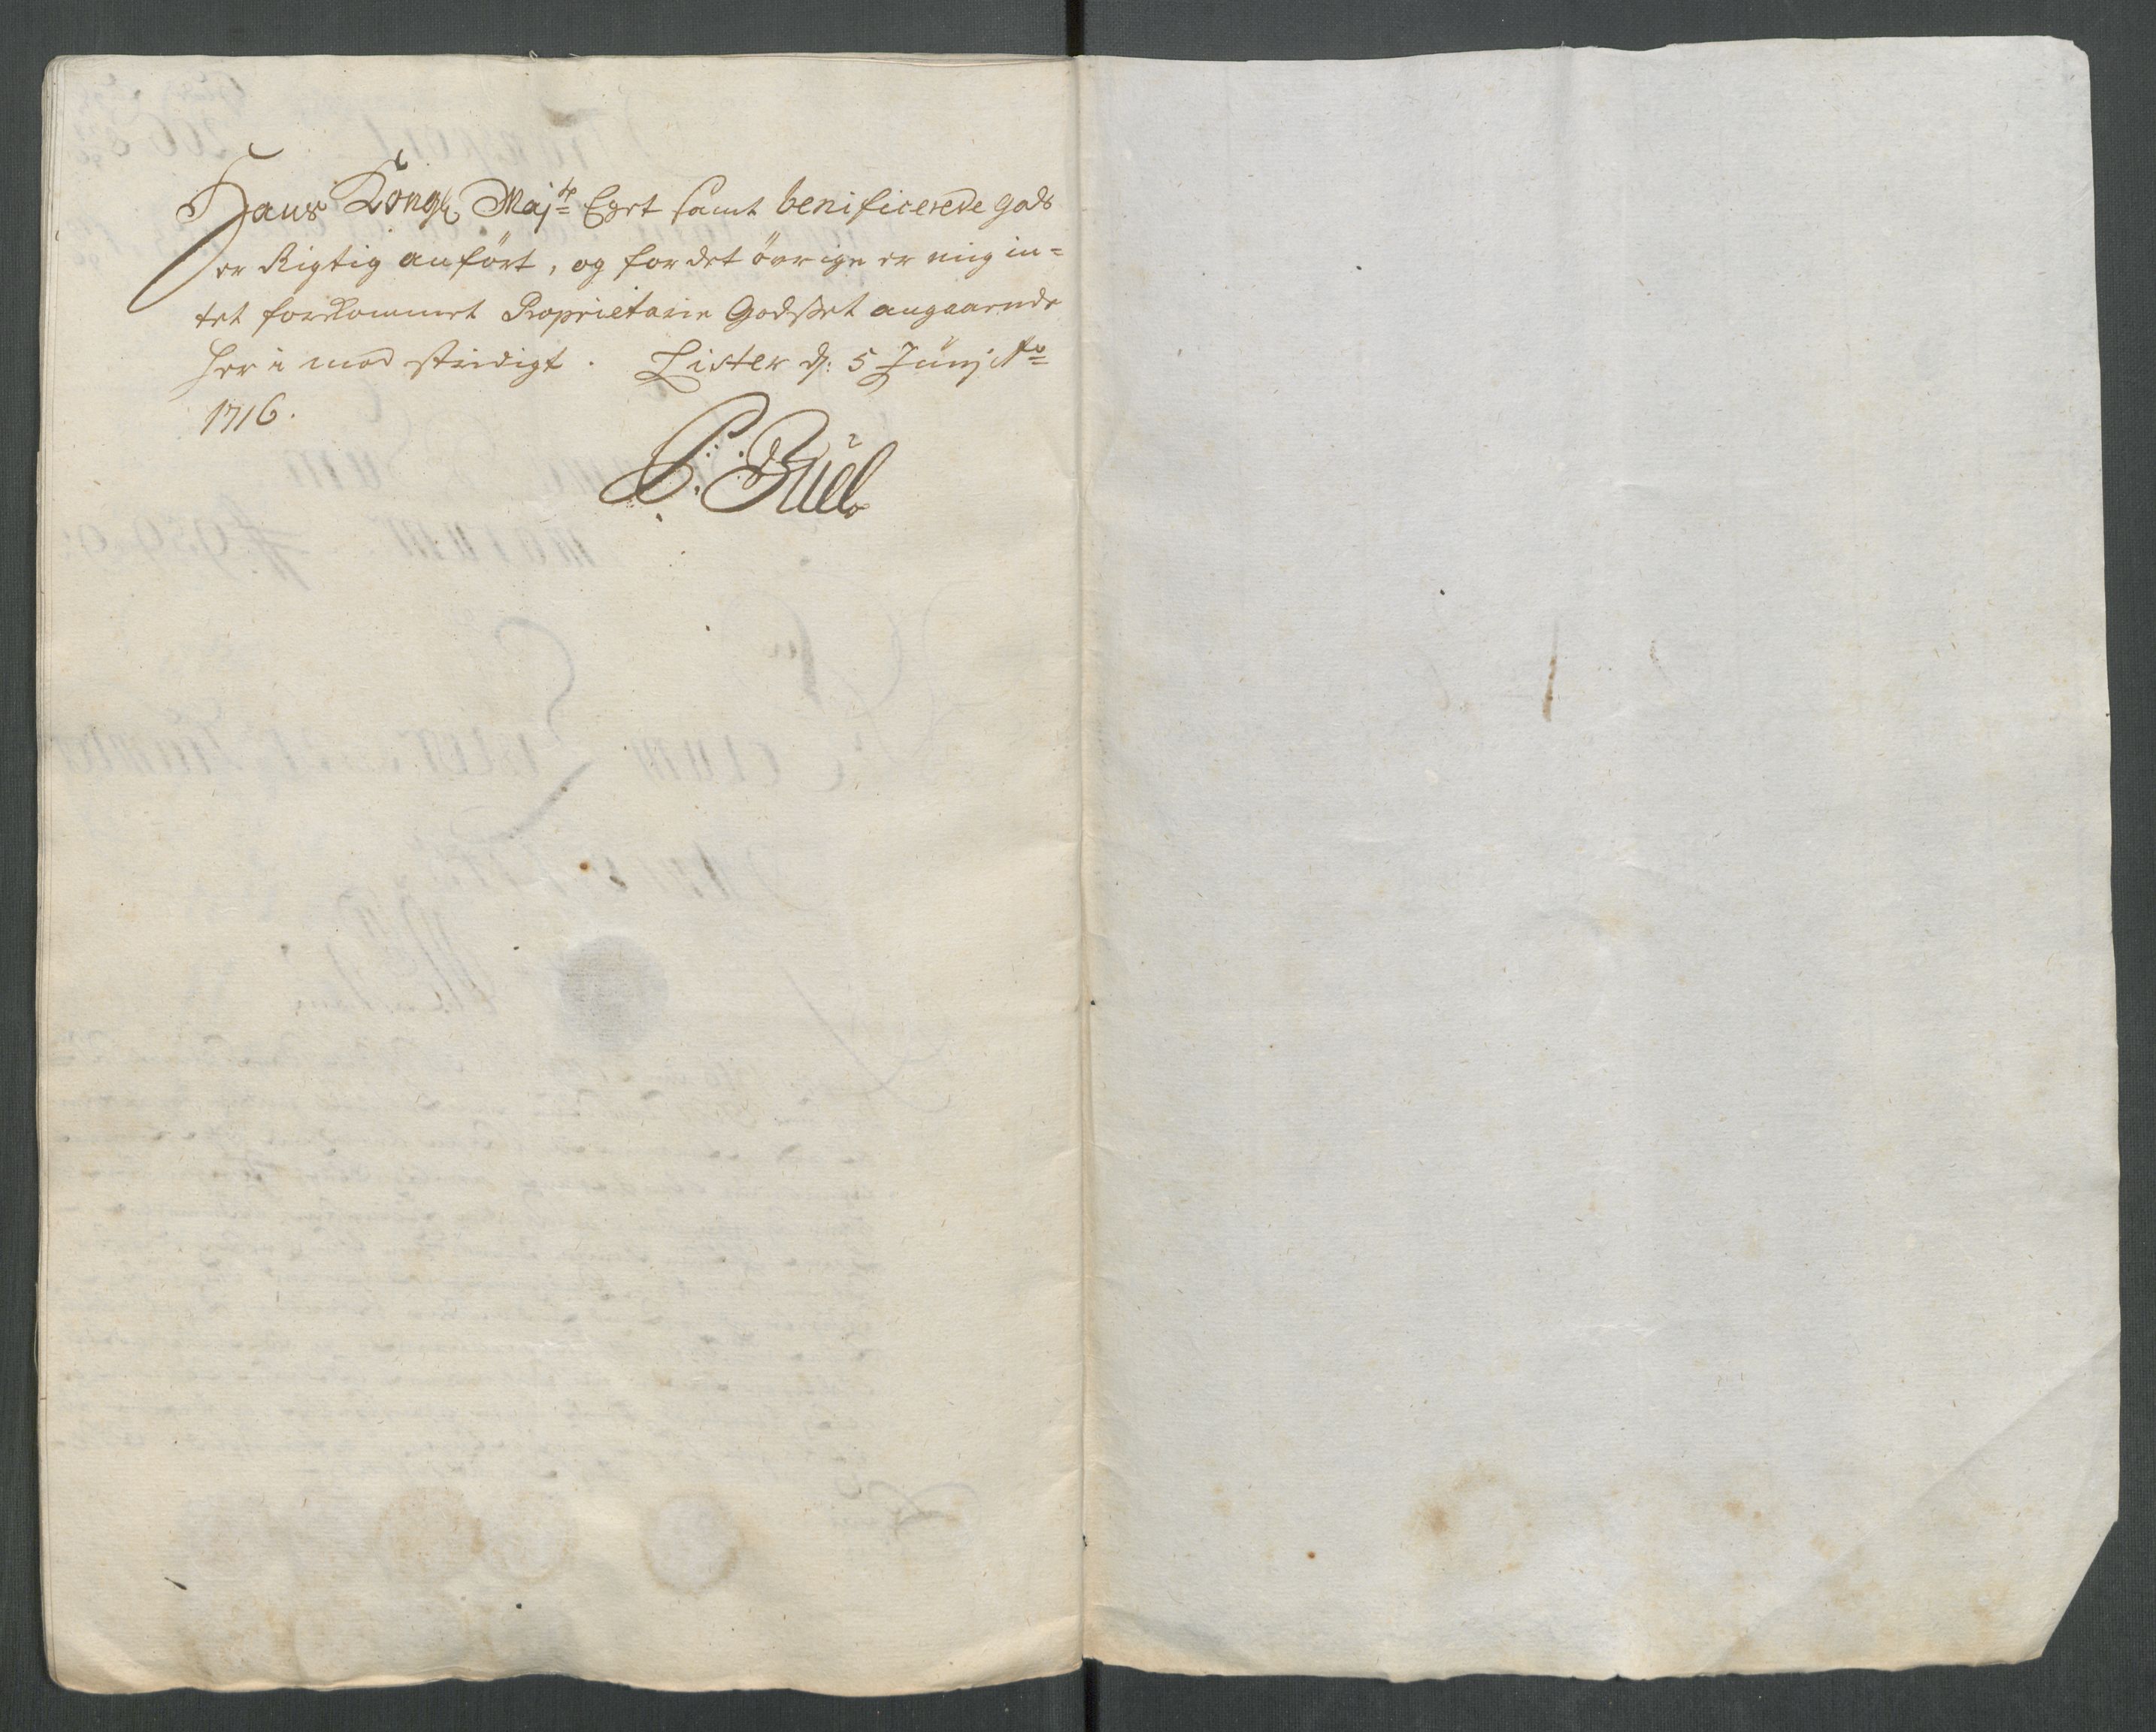 Hans Kongl Majte Eget samt benificerede gods
er Rigtig anført, og for det øvrige er mig in=
tet forekommet Proprietarie Godset angaaende
her i mod stridigt. Lister d: 5 Junj Ao
1716.
P. Buël